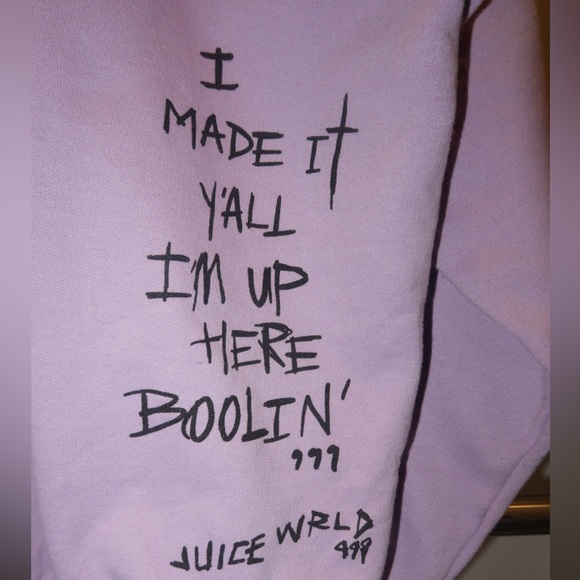 I
MADE IT
Y'ALL
I'M UP
HERE
BOOLIN'
999
JUICE WRLD
999